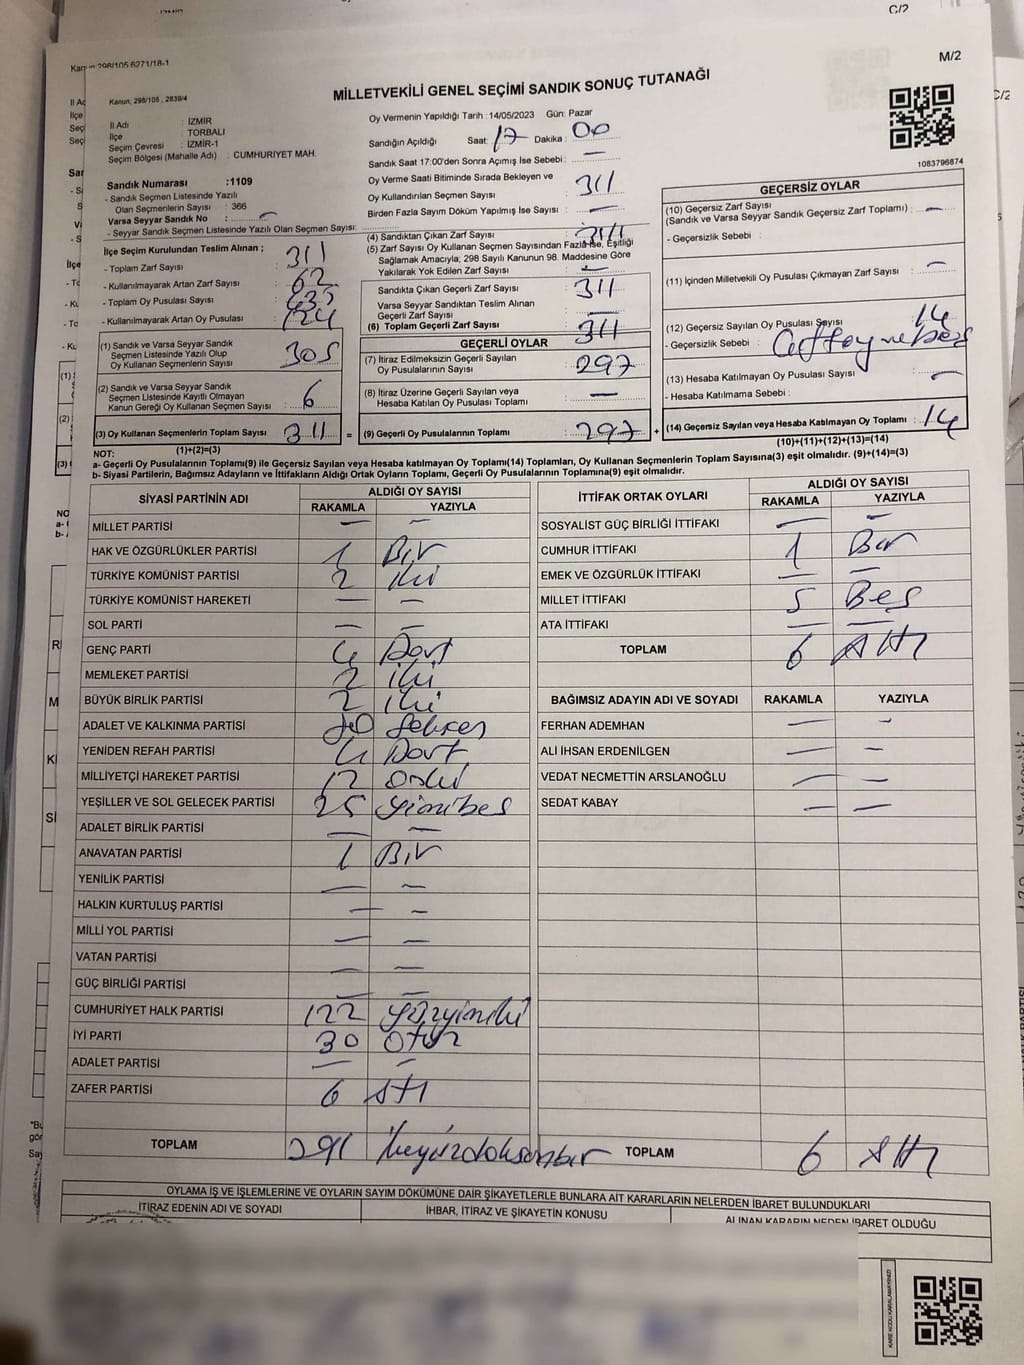 C/2
Kanun 298/105 6271/18-1
M/2
Kanun; 298/105 , 2839/4
MİLLETVEKİLİ GENEL SEÇİMİ SANDIK SONUÇ TUTANAĞI
İl Adı : İZMİR
İlçe : TORBALI
Seçim Çevresi : İZMİR-1
Seçim Bölgesi (Mahalle Adı) : CUMHURİYET MAH.
Sandık Numarası :1109
- Sandık Seçmen Listesinde Yazılı
Olan Seçmenlerin Sayısı : 366
Varsa Seyyar Sandık No : –
- Seyyar Sandık Seçmen Listesinde Yazılı Olan Seçmen Sayısı:
Oy Vermenin Yapıldığı Tarih :14/05/2023 Gün: Pazar
Sandığın Açıldığı Saat: 17 Dakika : 00
Sandık Saat 17:00'den Sonra Açımış İse Sebebi : –
Oy Verme Saati Bitiminde Sırada Bekleyen ve
Oy Kullandırılan Seçmen Sayısı : 311
Birden Fazla Sayım Döküm Yapılmış İse Sayısı : –
1083796874
İlçe Seçim Kurulundan Teslim Alınan ;
- Toplam Zarf Sayısı : 311
- Kullanılmayarak Artan Zarf Sayısı : 62
- Toplam Oy Pusulası Sayısı : 435
- Kullanılmayarak Artan Oy Pusulası : 124
(1) Sandık ve Varsa Seyyar Sandık
Seçmen Listesinde Yazılı Olup
Oy Kullanan Seçmenlerin Sayısı : 305
(2) Sandık ve Varsa Seyyar Sandık
Seçmen Listesinde Kayıtlı Olmayan
Kanun Gereği Oy Kullanan Seçmen Sayısı : 6
(3) Oy Kullanan Seçmenlerin Toplam Sayısı : 311
(1)+(2)=(3)
(4) Sandıktan Çıkan Zarf Sayısı : 311
(5) Zarf Sayısı Oy Kullanan Seçmen Sayısından Fazla İse, Eşitliği
Sağlamak Amacıyla; 298 Sayılı Kanunun 98. Maddesine Göre
Yakılarak Yok Edilen Zarf Sayısı : –
Sandıkta Çıkan Geçerli Zarf Sayısı : 311
Varsa Seyyar Sandıktan Teslim Alınan
Geçerli Zarf Sayısı : –
(6) Toplam Geçerli Zarf Sayısı : 311
GEÇERLİ OYLAR
(7) İtiraz Edilmeksizin Geçerli Sayılan
Oy Pusulalarının Sayısı : 297
(8) İtiraz Üzerine Geçerli Sayılan veya
Hesaba Katılan Oy Pusulası Toplamı : –
= (9) Geçerli Oy Pusulalarının Toplamı : 297
GEÇERSİZ OYLAR
(10) Geçersiz Zarf Sayısı
(Sandık ve Varsa Seyyar Sandık Geçersiz Zarf Toplamı) : –
- Geçersizlik Sebebi :
(11) İçinden Milletvekili Oy Pusulası Çıkmayan Zarf Sayısı : –
(12) Geçersiz Sayılan Oy Pusulası Sayısı : 14
- Geçersizlik Sebebi :
(13) Hesaba Katılmayan Oy Pusulası Sayısı : –
- Hesaba Katılmama Sebebi :
+ (14) Geçersiz Sayılan veya Hesaba Katılmayan Oy Toplamı : 14
(10)+(11)+(12)+(13)=(14)
NOT:
a- Geçerli Oy Pusulalarının Toplamı(9) ile Geçersiz Sayılan veya Hesaba katılmayan Oy Toplamı(14) Toplamları, Oy Kullanan Seçmenlerin Toplam Sayısına(3) eşit olmalıdır. (9)+(14)=(3)
b- Siyasi Partilerin, Bağımsız Adayların ve İttifakların Aldığı Ortak Oyların Toplamı, Geçerli Oy Pusulalarının Toplamına(9) eşit olmalıdır.
SİYASİ PARTİNİN ADI ALDIĞI OY SAYISI
RAKAMLA YAZIYLA
MİLLET PARTİSİ – –
HAK VE ÖZGÜRLÜKLER PARTİSİ 1 Bir
TÜRKİYE KOMÜNİST PARTİSİ 2 iki
TÜRKİYE KOMÜNİST HAREKETİ – –
SOL PARTİ – –
GENÇ PARTİ 4 Dört
MEMLEKET PARTİSİ 2 iki
BÜYÜK BİRLİK PARTİSİ 2 iki
ADALET VE KALKINMA PARTİSİ 80 Seksen
YENİDEN REFAH PARTİSİ 4 Dört
MİLLİYETÇİ HAREKET PARTİSİ 12 Oniki
YEŞİLLER VE SOL GELECEK PARTİSİ 25 yirmibeş
ADALET BİRLİK PARTİSİ – –
ANAVATAN PARTİSİ 1 Bir
YENİLİK PARTİSİ – –
HALKIN KURTULUŞ PARTİSİ – –
MİLLİ YOL PARTİSİ – –
VATAN PARTİSİ – –
GÜÇ BİRLİĞİ PARTİSİ – –
CUMHURİYET HALK PARTİSİ 122 yüzyirmiiki
İYİ PARTİ 30 Otuz
ADALET PARTİSİ – –
ZAFER PARTİSİ 6 Altı
TOPLAM 291 ikiyüzdoksanbir
İTTİFAK ORTAK OYLARI ALDIĞI OY SAYISI
RAKAMLA YAZIYLA
SOSYALİST GÜÇ BİRLİĞİ İTTİFAKI – –
CUMHUR İTTİFAKI 1 Bir
EMEK VE ÖZGÜRLÜK İTTİFAKI – –
MİLLET İTTİFAKI 5 Beş
ATA İTTİFAKI – –
TOPLAM 6 Altı
BAĞIMSIZ ADAYIN ADI VE SOYADI RAKAMLA YAZIYLA
FERHAN ADEMHAN – –
ALİ İHSAN ERDENİLGEN – –
VEDAT NECMETTİN ARSLANOĞLU – –
SEDAT KABAY – –
TOPLAM 6 Altı
OYLAMA İŞ VE İŞLEMLERİNE VE OYLARIN SAYIM DÖKÜMÜNE DAİR ŞİKAYETLERLE BUNLARA AİT KARARLARIN NELERDEN İBARET BULUNDUKLARI
İTİRAZ EDENİN ADI VE SOYADI İHBAR, İTİRAZ VE ŞİKAYETİN KONUSU ALINAN KARARIN NEDEN İBARET OLDUĞU
KARE KODU KARALAMAYINIZ!